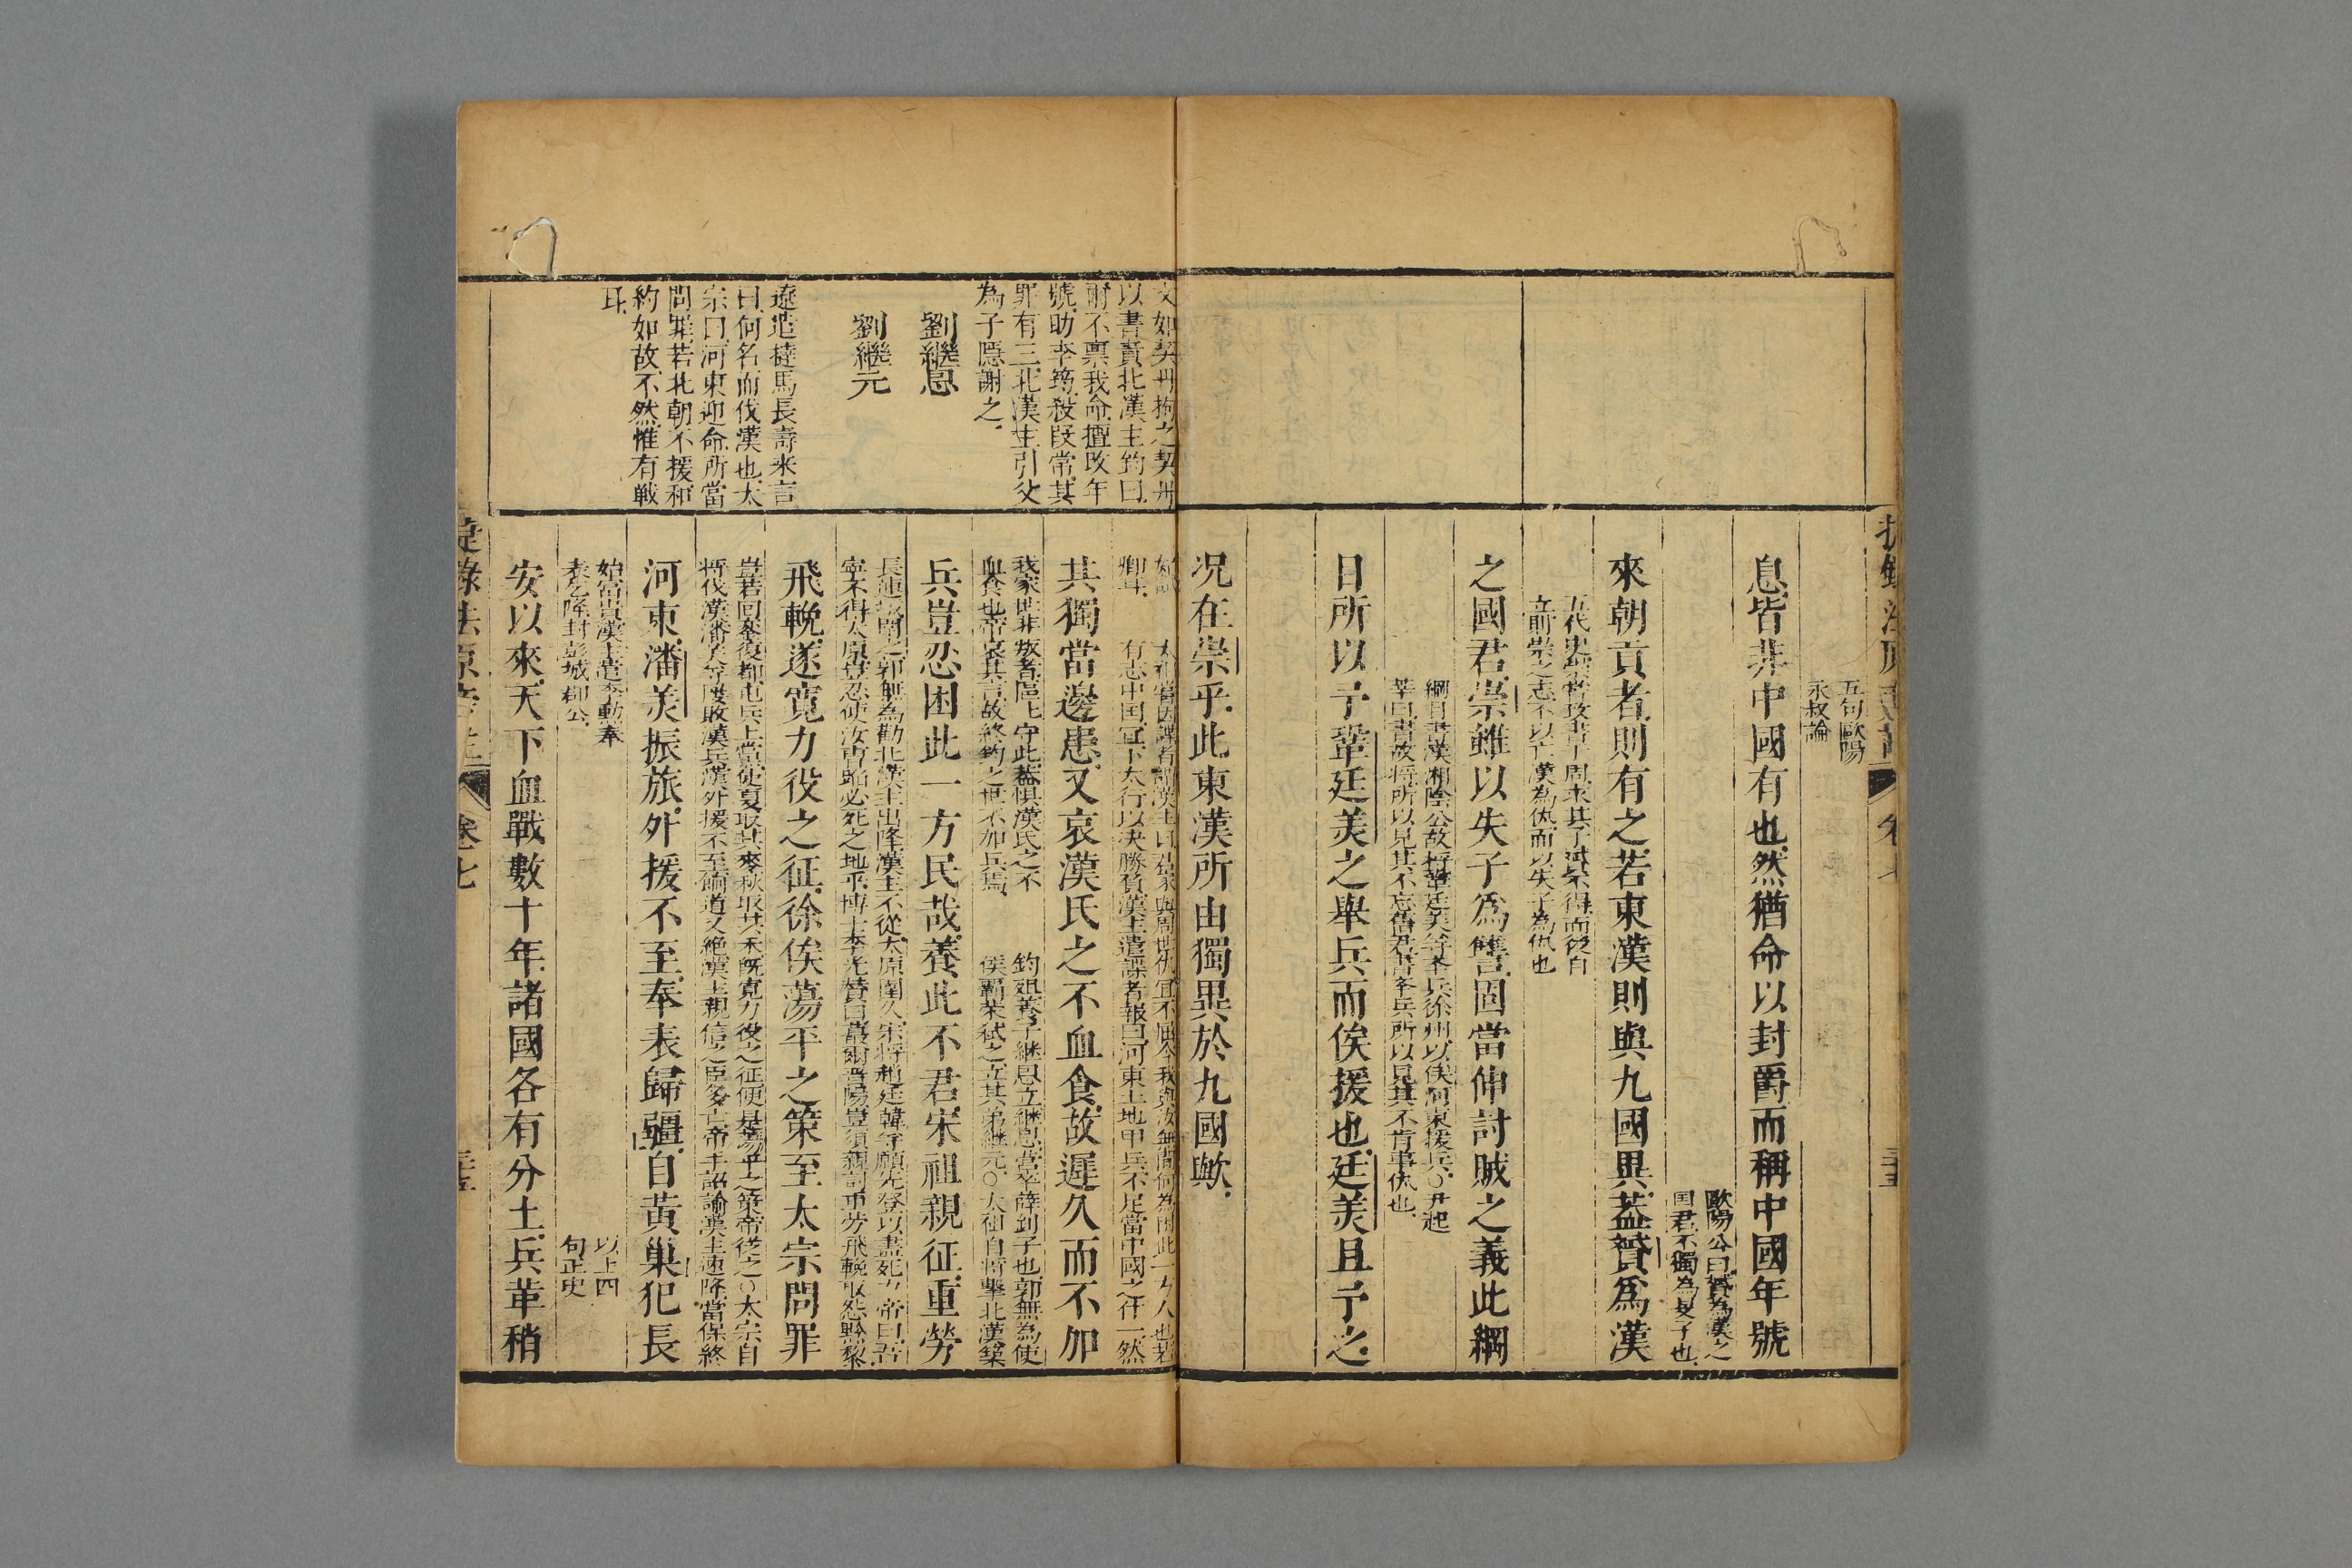 五句歐陽
永叔論
息皆非中國有也然猶命以封爵而稱中國年號
歐陽公曰贇為漢之
国君不獨為旻子也
來朝貢者則有之若東漢則與九國異蓋贇爲漢
五代史
立前崇之志不以亡漢為仇而以失子為仇也
之國君崇雖以失子爲讐固當伸討賊之義此綱
綱目書漢湘陰公故將鞏廷美等舉兵徐州以俟河東援兵○尹起
莘曰書故將所以見其不忘舊君書舉兵所以見其不肯事仇也
日所以予鞏廷美之舉兵而俟援也廷美且予之
況在崇乎此東漢所由獨異於九國歟
文如契丹拘之契丹
以書責北漢主鈞曰
爾不禀我命擅改年
號助李筠殺段常其
罪有三北漢主引父
為子隱謝之
劉繼恩
劉繼元
遼遣撻馬長壽来言
曰何名而伐漢也太
宗曰河東逆命所當
問罪若北朝不援和
約如故不然惟有戦
耳
卿耳
太祖嘗因諜者謂漢主曰君家與周世仇宜不屈今我與汝無間何為困此一方人也若
有志中国宜下太行以决勝負漢主遣諜者報曰河東土地甲兵不足當中國之什一然
其獨當邊患又哀漢氏之不血食故遲久而不加
我家世非叛者區區守此蓋惧漢氏之不
血食也帝哀其言故終鈞之世不加兵焉
鈞殂養子継恩立継恩嘗卒薛釗子也郭無為使
侯霸榮弑之立其弟継元○太祖自將擊北漢築
兵豈忍困此一方民哉養此不君宋祖親征重勞
長連城圍之郭無為勸北漢主出降漢主不從太原圍久宋將趙廷韓等願先登以盡死力帝曰吾
寧不得太原豈忍使汝曹蹈必死之地乎博士李光賛曰蕞爾晋陽豈須親討重労飛輓取怨黔黎
飛輓遂寬力役之征徐俟蕩平之策至太宗問罪
豈若回鑾復都屯兵上黨使夏取其麥秋取其禾既寬力役之征便是蕩平之策帝從之○太宗自
將伐漢潘美等屢敗漢兵漢外援不至餉道又絶漢主親信之臣多亡帝手詔諭漢主速降當保終
河東潘美振旅外援不至奉表歸疆自黄巢犯長
始富貴漢主遣李勲奉
表乞降封彭城郡公
以上四
句正史
安以來天下血戰數十年諸國各有分土兵革稍
卷七